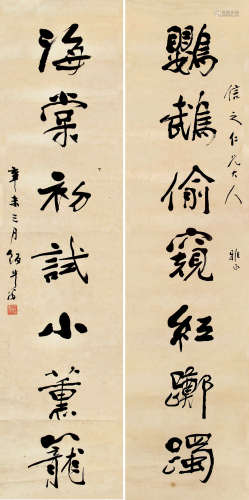 信之仁兄大人
雅正
鸚鵡偷窺紅躑躅
海棠初試小薰籠
辛未三月